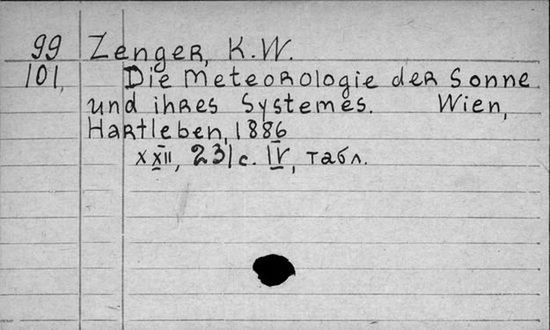 99 Zenger, K.W.
101, Die Meteorologie der Sonne
und ihres Systemes. Wien,
Hartleben, 1886
XXII, 231 с. IV, табл.